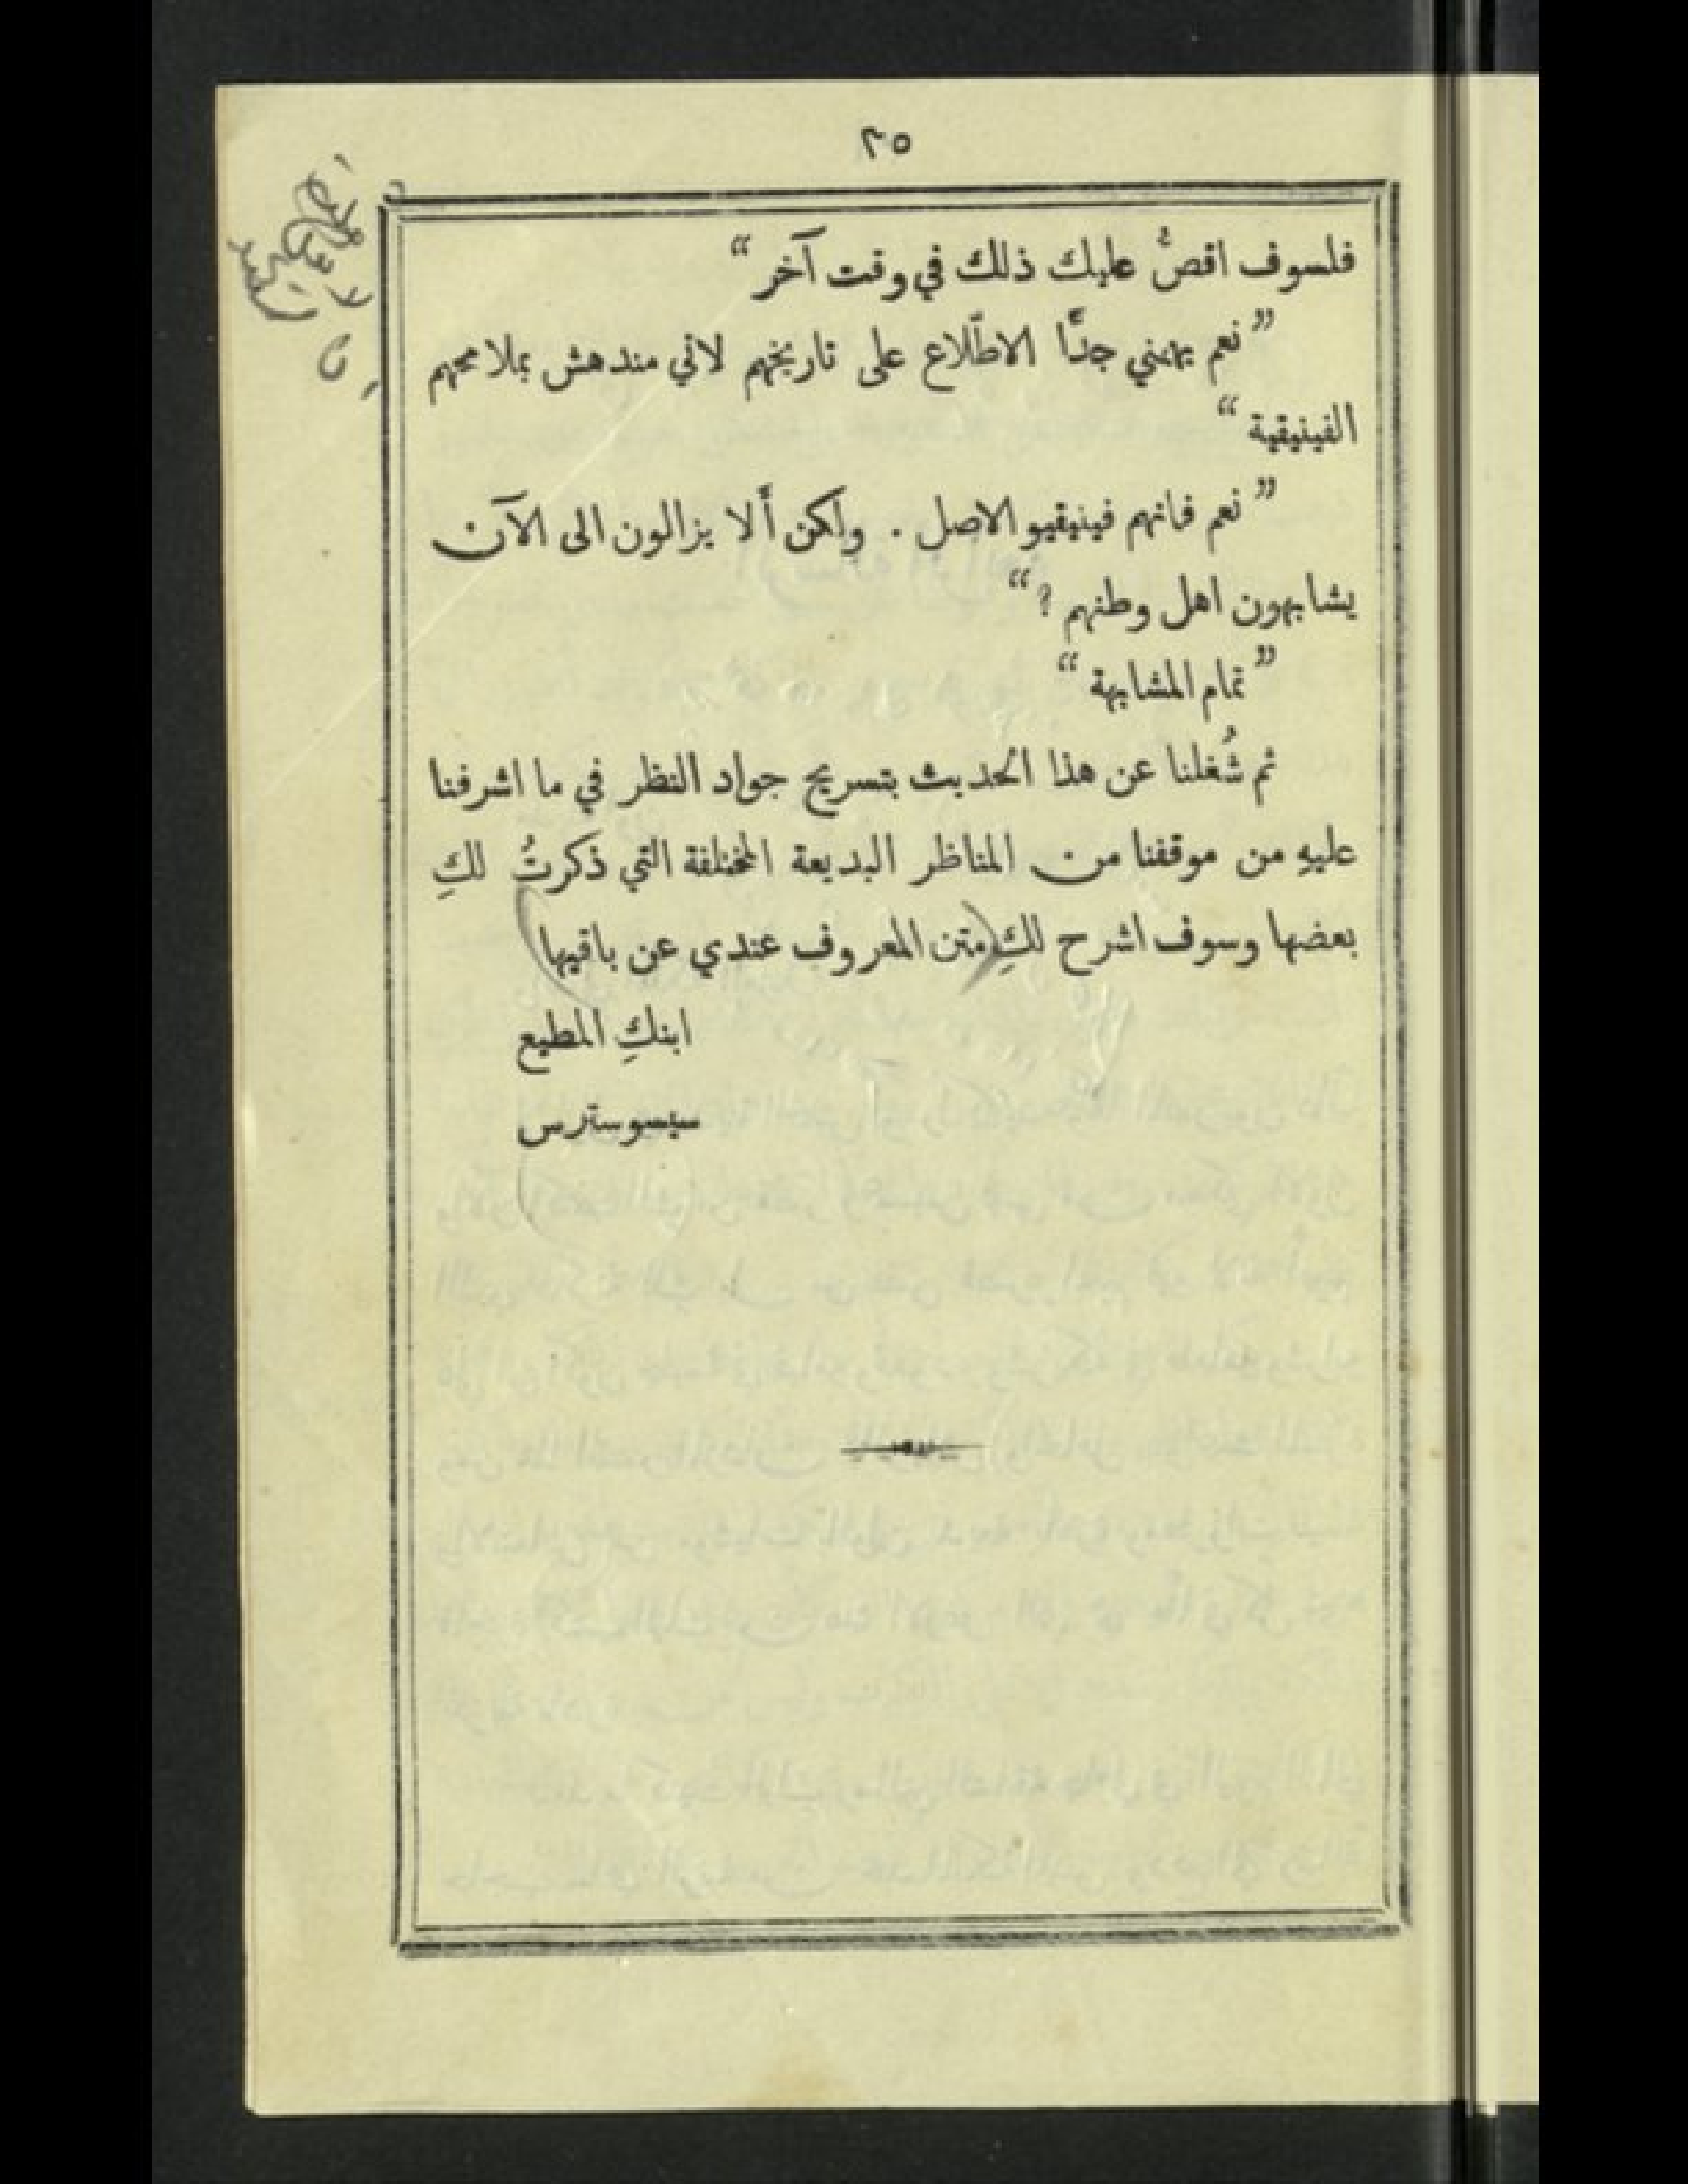 ٢٥
فلسوف اقصُّ عليك ذلك في وقت آخر “
” نعم يهمني جدًّا الاطّلاع على تاريخهم لاني مندهش بملامحهم
الفينيقية “
” نعم فانهم فينيقيو الاصل . ولكن أَلا يزالون الى الآن
يشابهون اهل وطنهم ? “
” تمام المشابهة “
ثم شُغلنا عن هذا الحديث بتسريح جواد النظر في ما اشرفنا
عليهِ من موقفنا من المناظر البديعة المختلفة التي ذكرتُ لكِ
بعضها وسوف اشرح لكِ (متن المعروف عندي عن باقيها)
ابنكِ المطيع
سيسوسترس